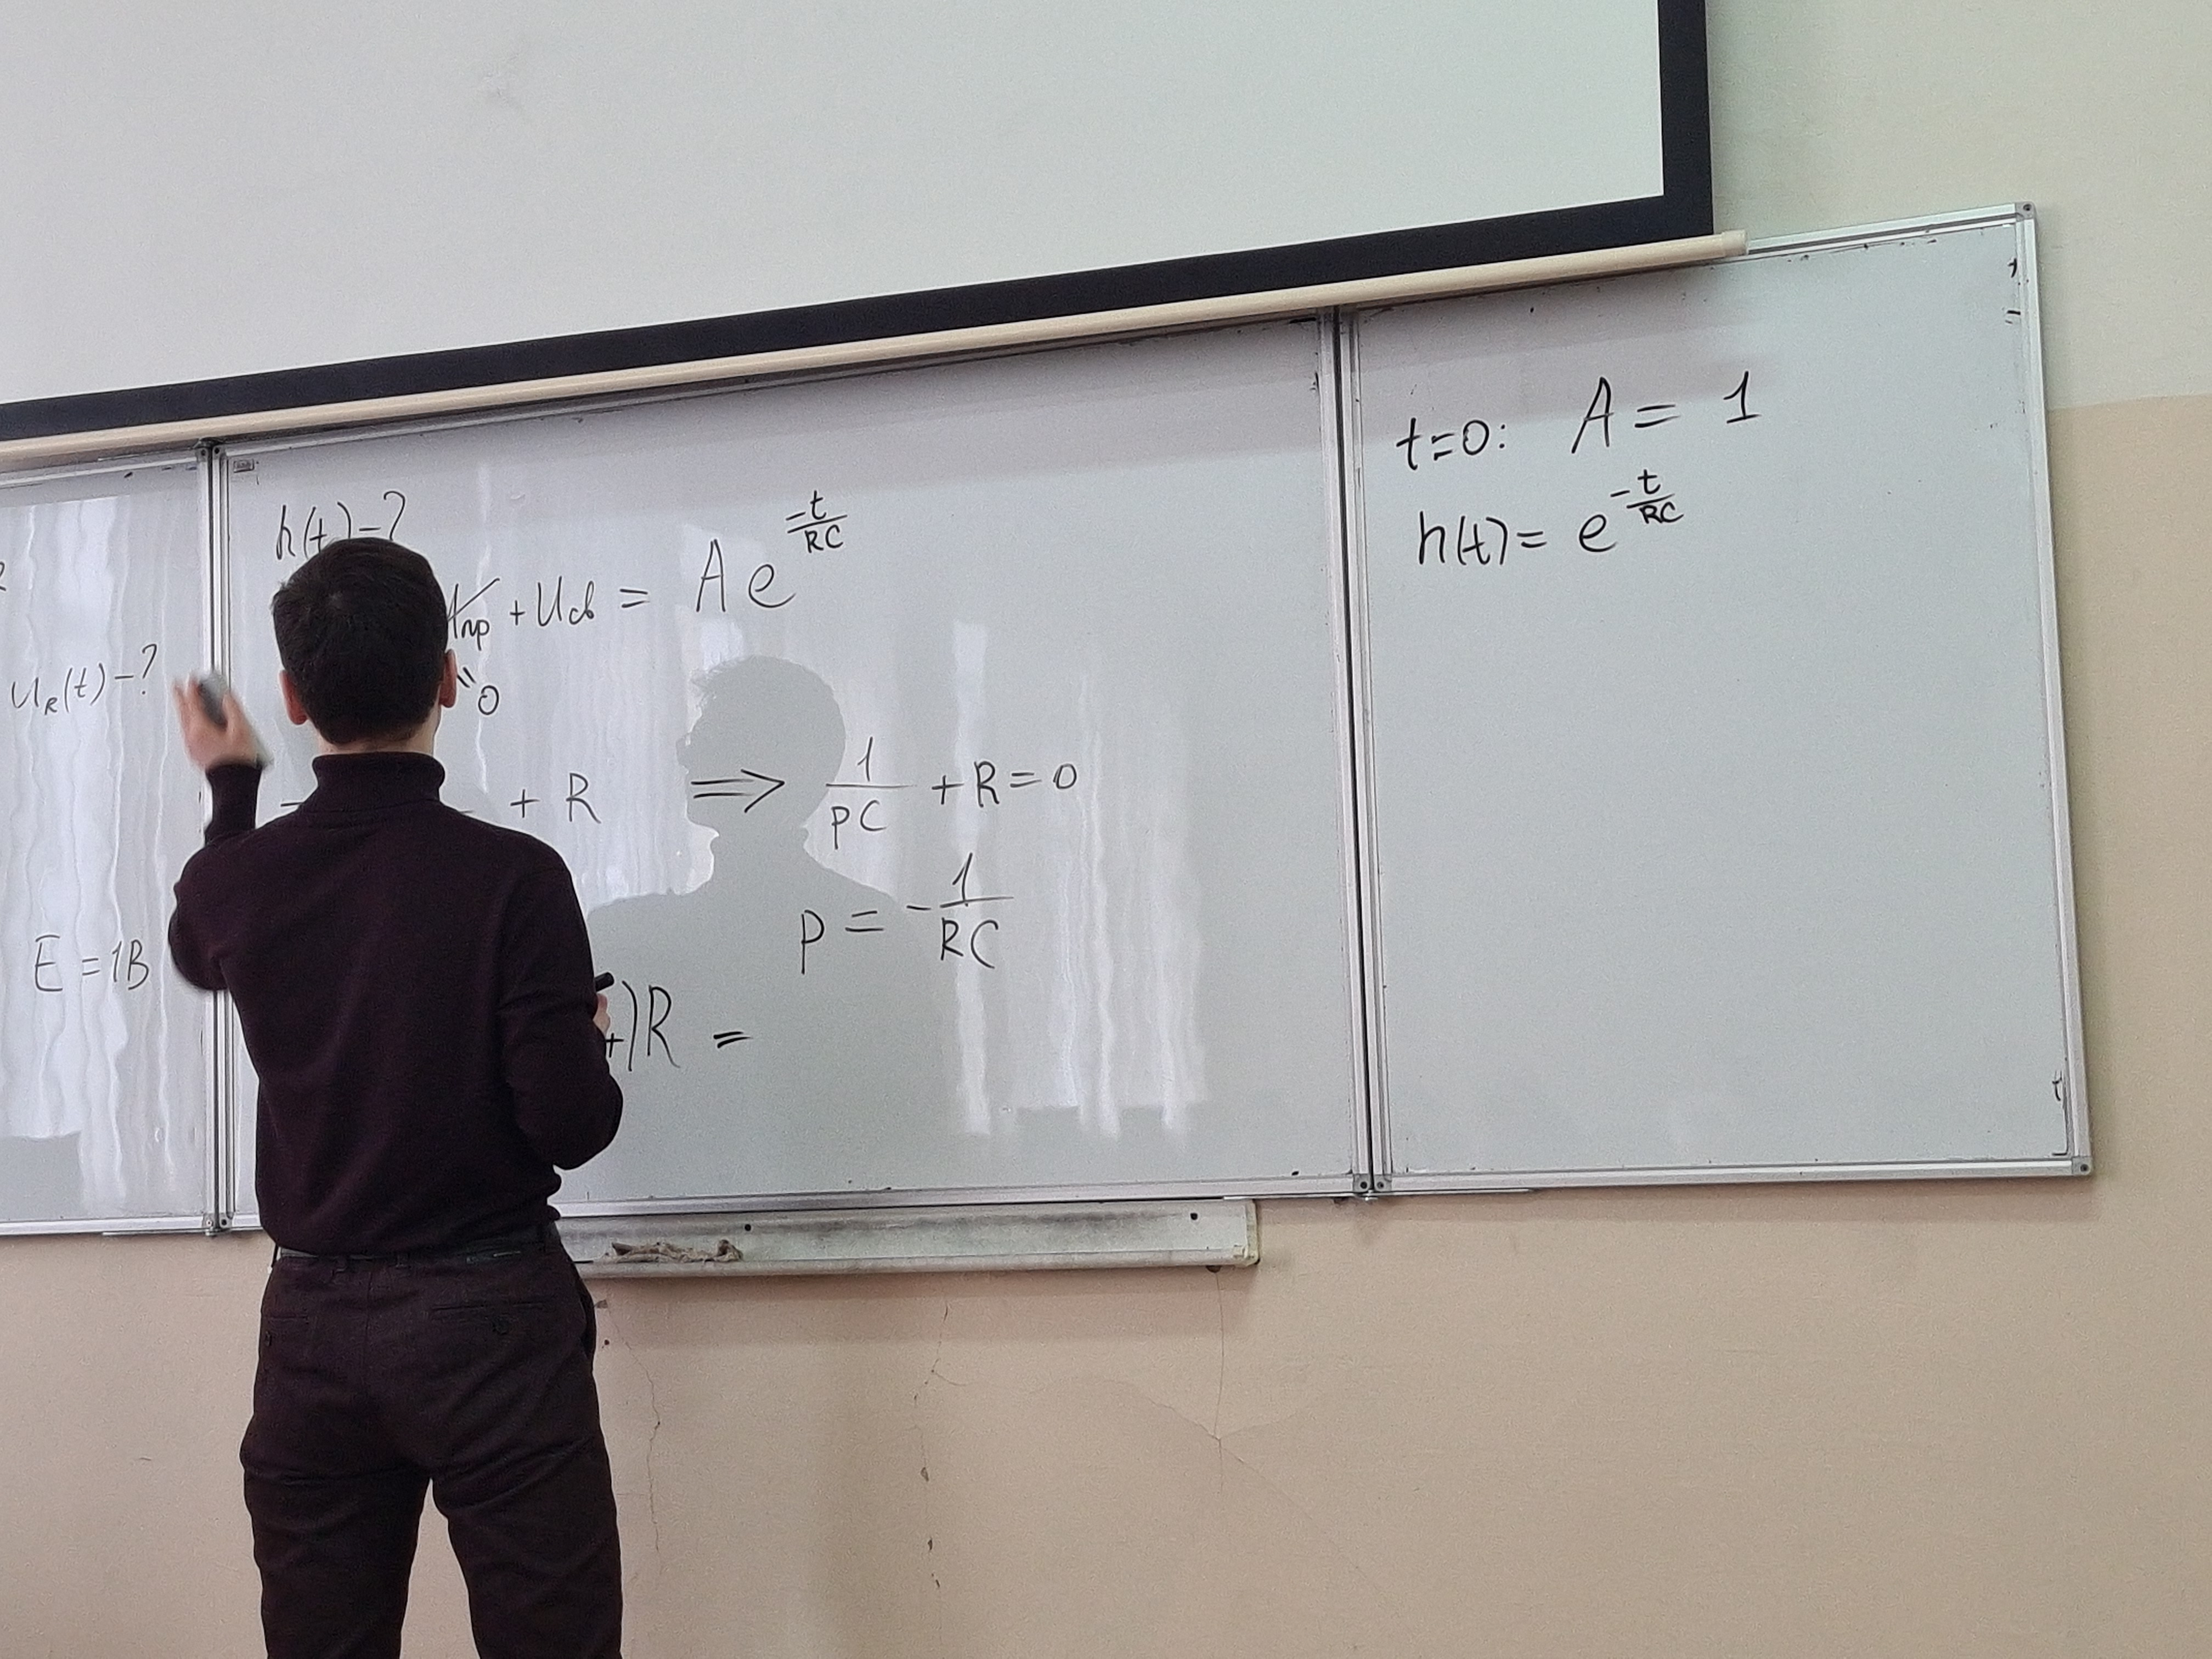 U_R(t) - ?
E = 1В
h(t) - ?
пр + Uсв = A e^{-t/RC}
" 0
+ R ⟹ 1/pC + R = 0
p = - 1/RC
)R =
t=0: A = 1
h(t) = e^{-t/RC}